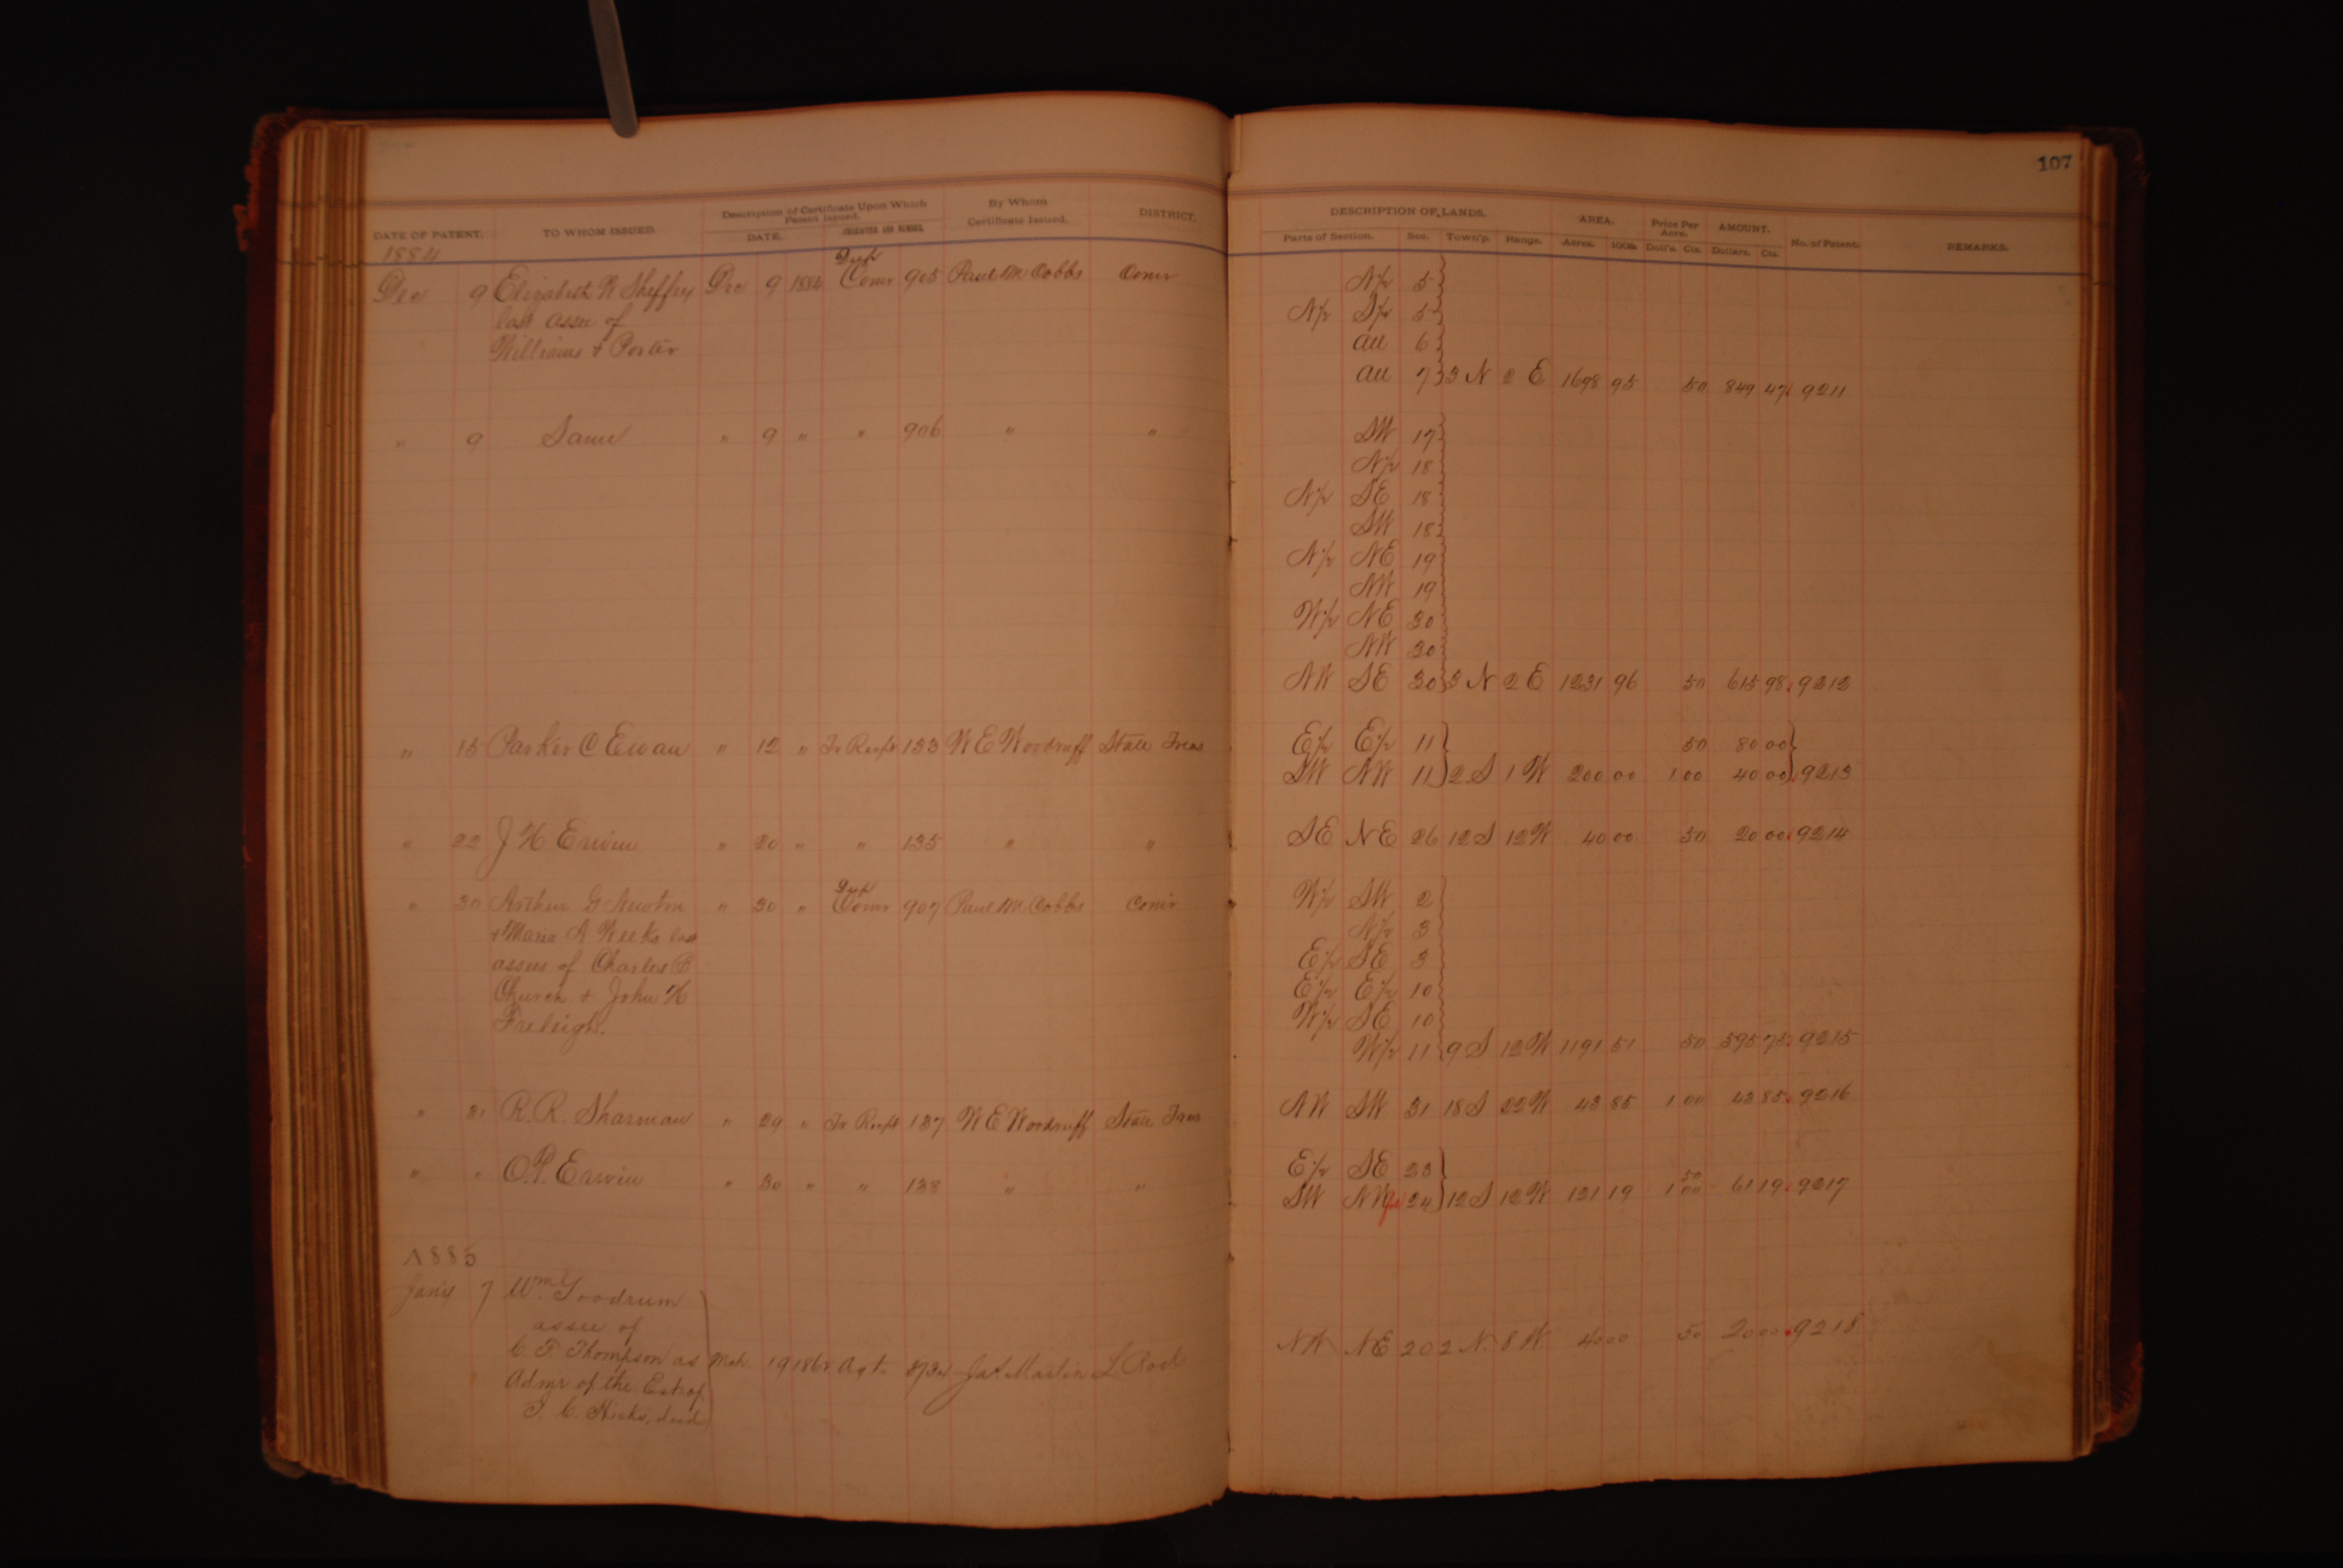 107
DATE OF PATENT. TO WHOM ISSUED. Description of Certificate Upon Which Patent Issued. DATE. CHARACTER AND NUMBER. By Whom Certificate Issued. DISTRICT. DESCRIPTION OF LANDS. Parts of Section. Sec. Town'p. Range. AREA. Acres. 100ths. Price Per Acre. Doll's. Cts. AMOUNT. Dollars. Cts. No. of Patent. REMARKS.
1884
Dec 9 Elizabeth R Sheffey Dec 9 1884 Dup Comr 905 Paul M Cobbs Comr N½ 5
last assee of N½ S½ 5
Williams + Porter all 6
all 7 3 N 2 E 1698 95 50 849 47 9211
" 9 Same " 9 " " 906 " " SW 17
N½ 18
N½ SE 18
SW 18
N½ NE 19
NW 19
W½ NE 30
NW 30
NW SE 30 3 N 2 E 1231 96 50 615 98 9212
" 15 Parker C Ewan " 12 " Tr Recpt 133 W E Woodruff State Treas E½ E½ 11 50 80 00
SW NW 11 2 S 1 W 200 00 1 00 40 00 9213
" 22 J H Erwin " 20 " " 135 " " SE NE 26 12 S 12 W 40 00 50 20 00 9214
" 30 Arthur G Newton " 30 " Dup Comr 907 Paul M Cobbs Comr W½ SW 2
+ Maria A Weeks last N½ 3
assees of Charles B E½ SE 3
Church + John H E½ E½ 10
Faeleigh. W½ SE 10
W½ 11 9 S 12 W 1191 51 50 595 75 9215
" 31 R. R. Sharman " 29 " Tr Recpt 137 W E Woodruff State Treas NW SW 31 18 S 22 W 43 85 1 00 43 85 9216
" " O. P. Erwin " 30 " " 138 " " E½ SE 23 50
SW NW 24 12 S 12 W 121 19 1 00 61 19 9217
1885
Jan'y 7 Wm Goodrum
assee of
C. F. Thompson as Mch. 19 Agt. Jas. Martin L. Rock NW NE 20 2 N. 8 W 40 00 50 20 00 9218
Admr of the Est of
T. C. Hicks, decd